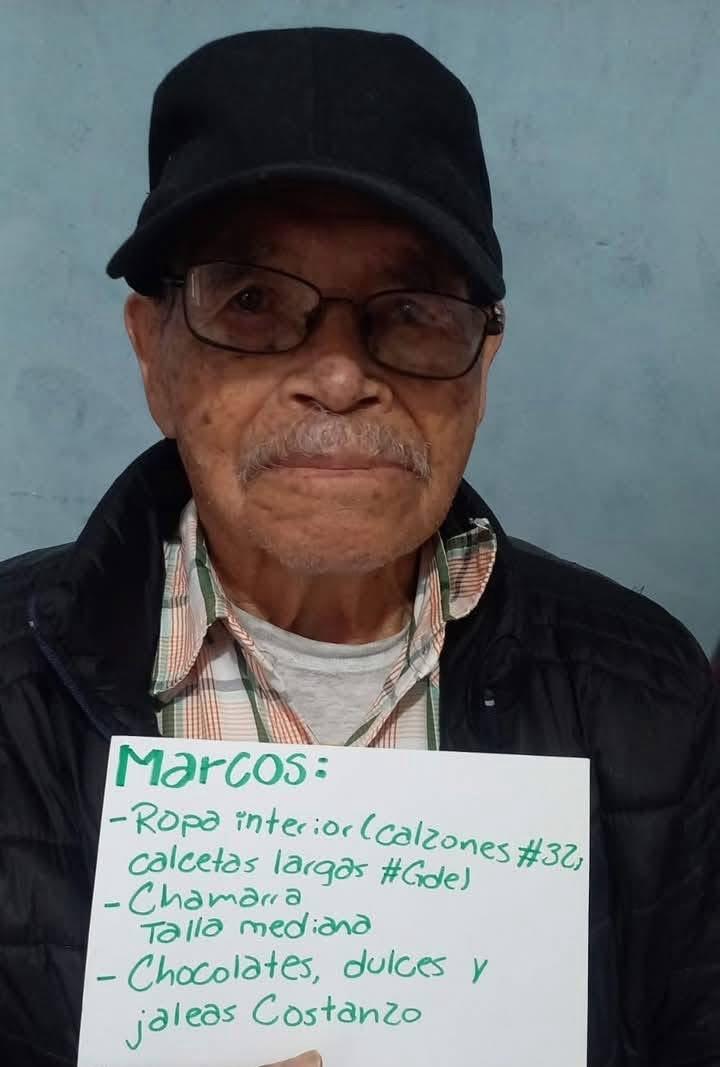 Marcos:
- Ropa interior (calzones #32,
calcetas largas #Gde)
- Chamarra
Talla mediana
- Chocolates, dulces y
jaleas Costanzo